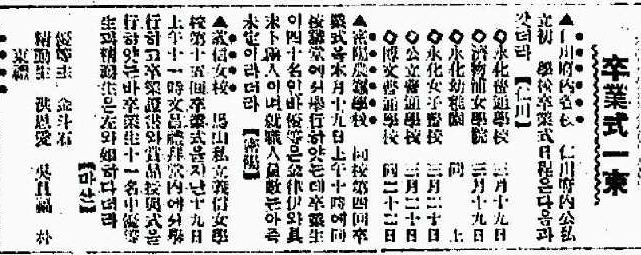 卒業式一束
▲仁川府內各校 仁川府內公私
立初 學校卒業式日程은다음과
갓더라【仁川】
◇永化普通學校 三月十九日
◇濟物浦女學院 三月十九日
◇永化幼稚園 同 上
◇永化女子普校 三月二十日
◇公立普通學校 三月二十日
◇博文普通學校 同二十二日
▲密陽農蠶學校 同校第四回卒
業式을本月十九日上午十時에同
校講堂에서擧行하얏는데卒業生
이四十名인바優等은金律伊와具
未卜兩人이며就職人員數는아즉
未定이라더라【密陽】
▲義信女校 馬山私立義信女學
校第十五回卒業式을지난十九日
上午十一時文昌禮拜堂內에서擧
行하고卒業證書와賞品授與式을
行하얏는바卒業生十一名中優等
生과精勤生은左와如하다더라
【마산】
優等生 金斗石
精勤生 洪恩愛 吳且福 朴
東禧